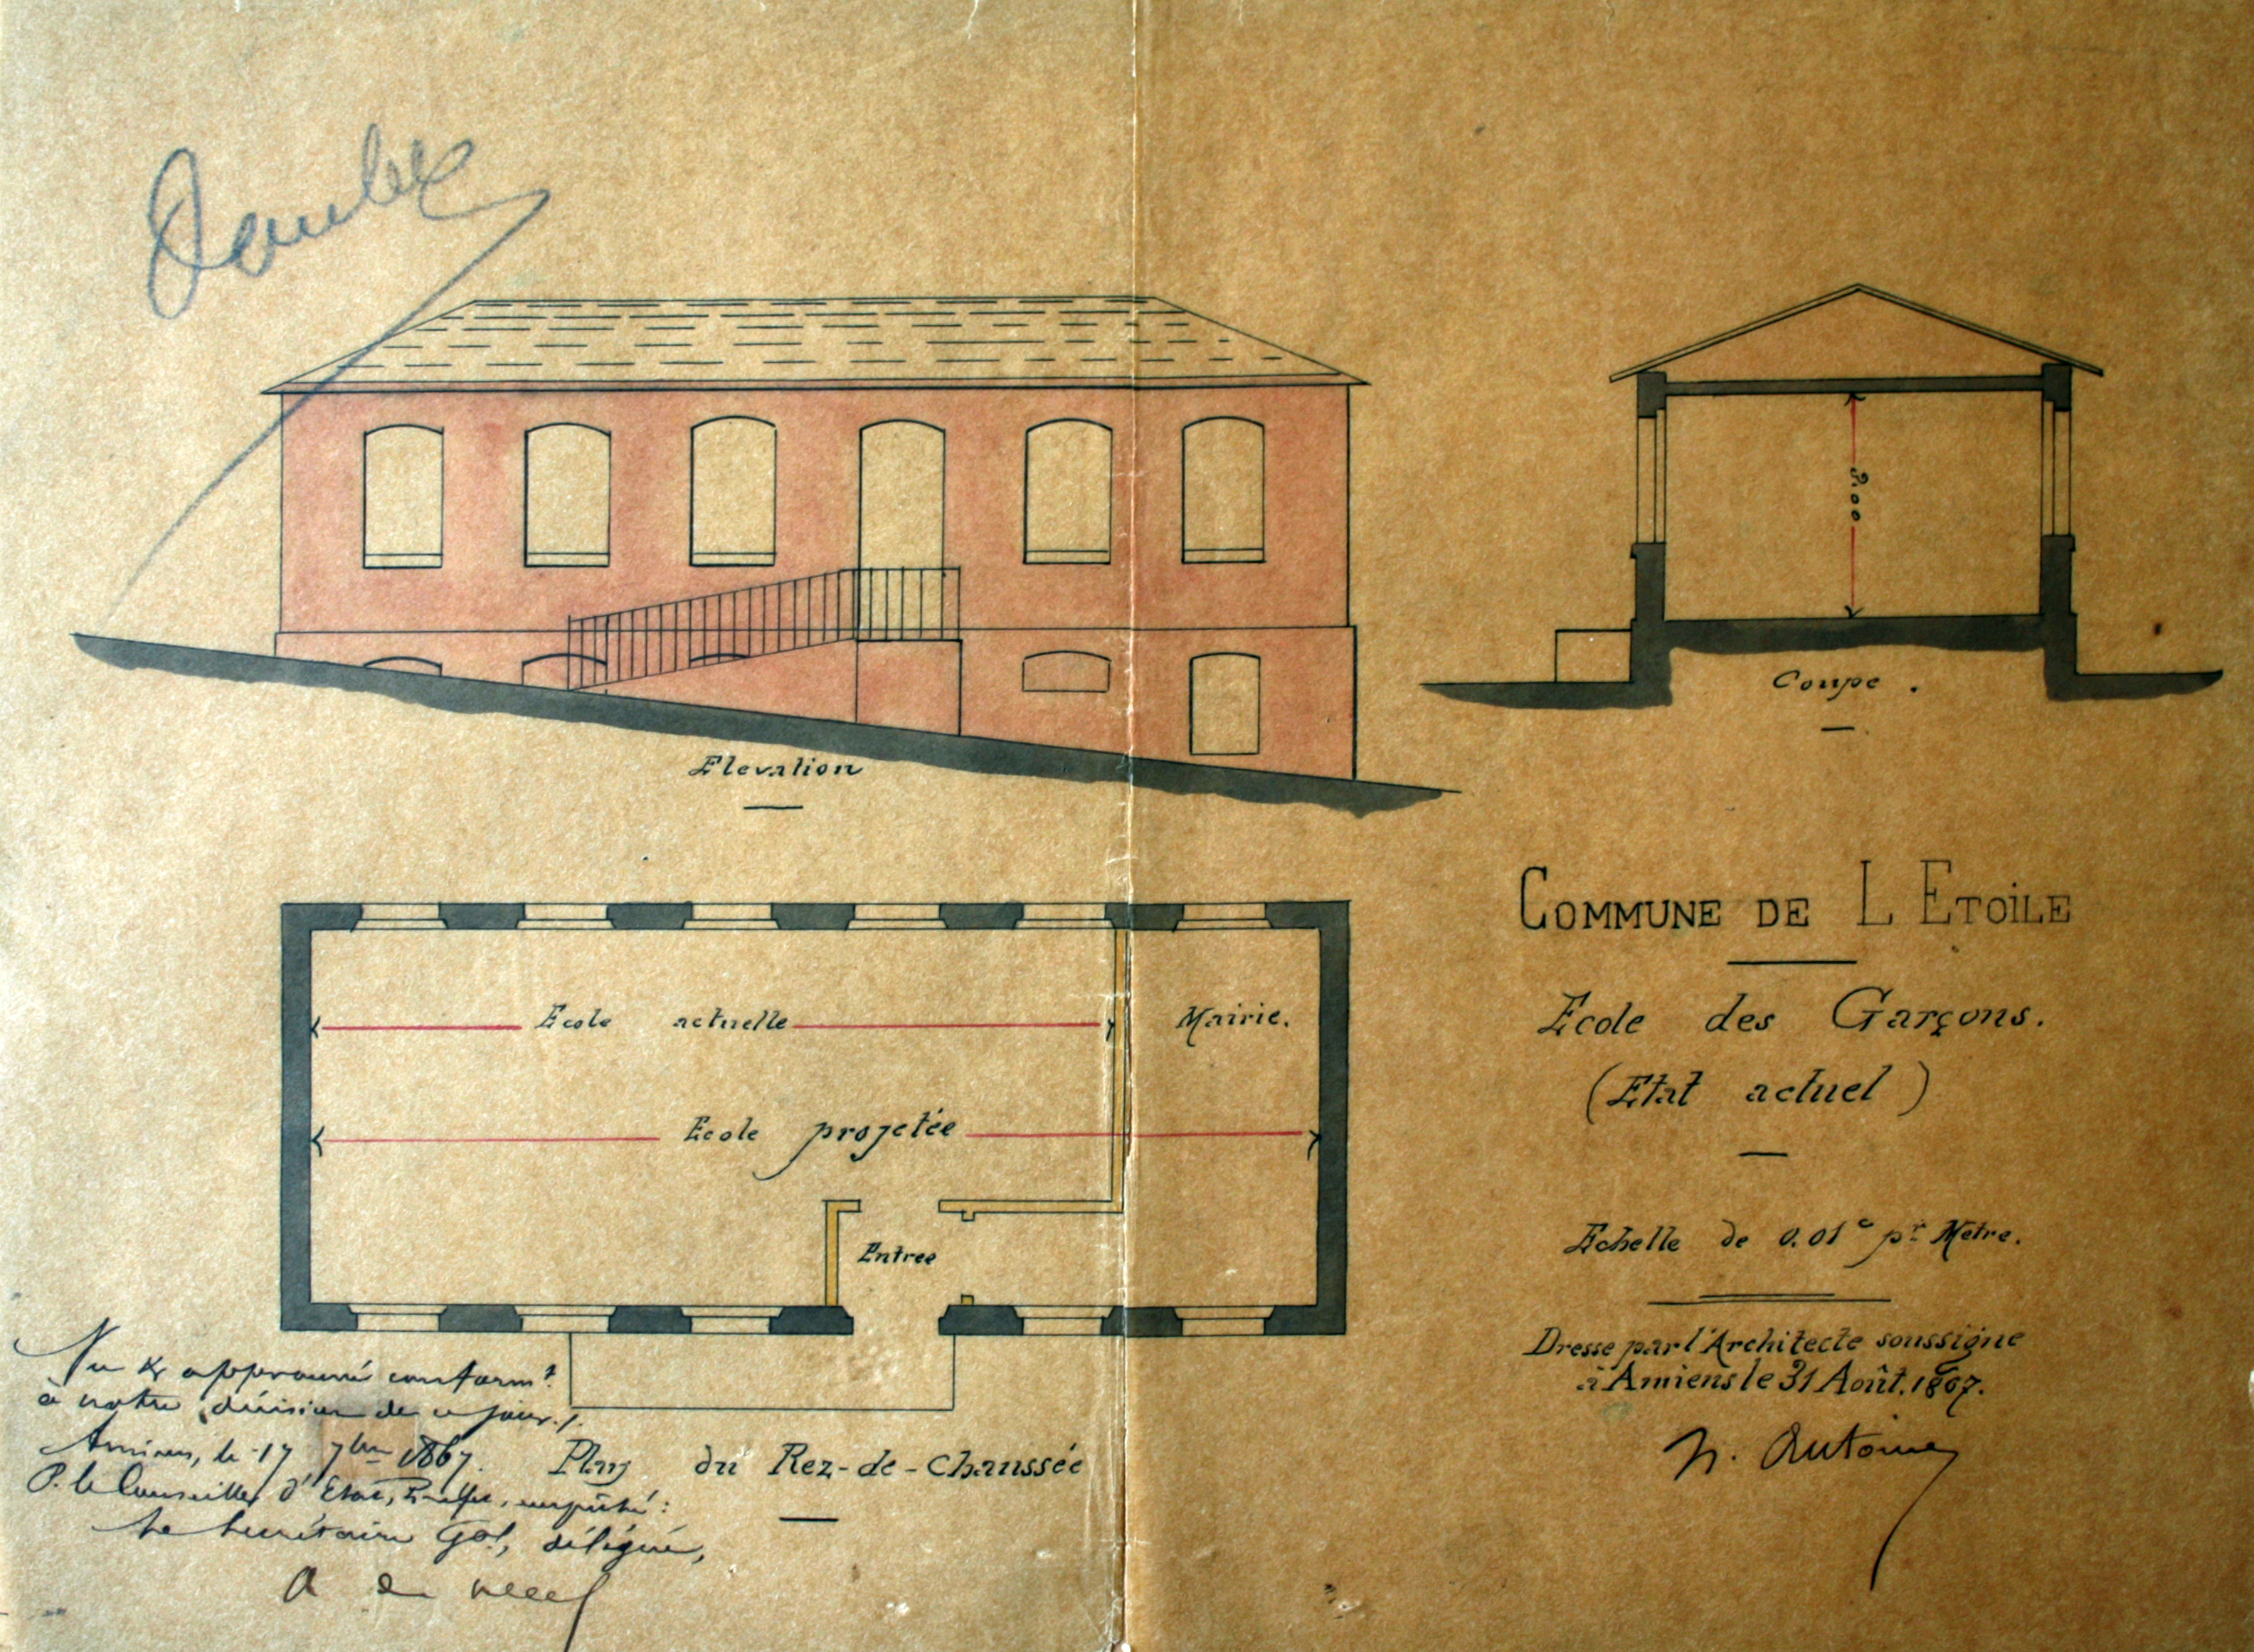 Double
3.00
Elevation
Coupe.
COMMUNE DE L ETOILE
Ecole des Garçons.
(Etat actuel)
Echelle de 0.01c pr Metre.
Dresse par l'Architecte soussigne
à Amiens le 31 Août. 1867.
Ecole actuelle
Mairie.
Ecole projetée
Entree
Plan du Rez-de-Chaussée
Vu & approuvé conformt
à notre décision de ce jour./.
Amiens, le 17 7bre 1867.
P. le Conseiller d'Etat, Préfet, empêché:
Le Secrétaire Gal, délégué,